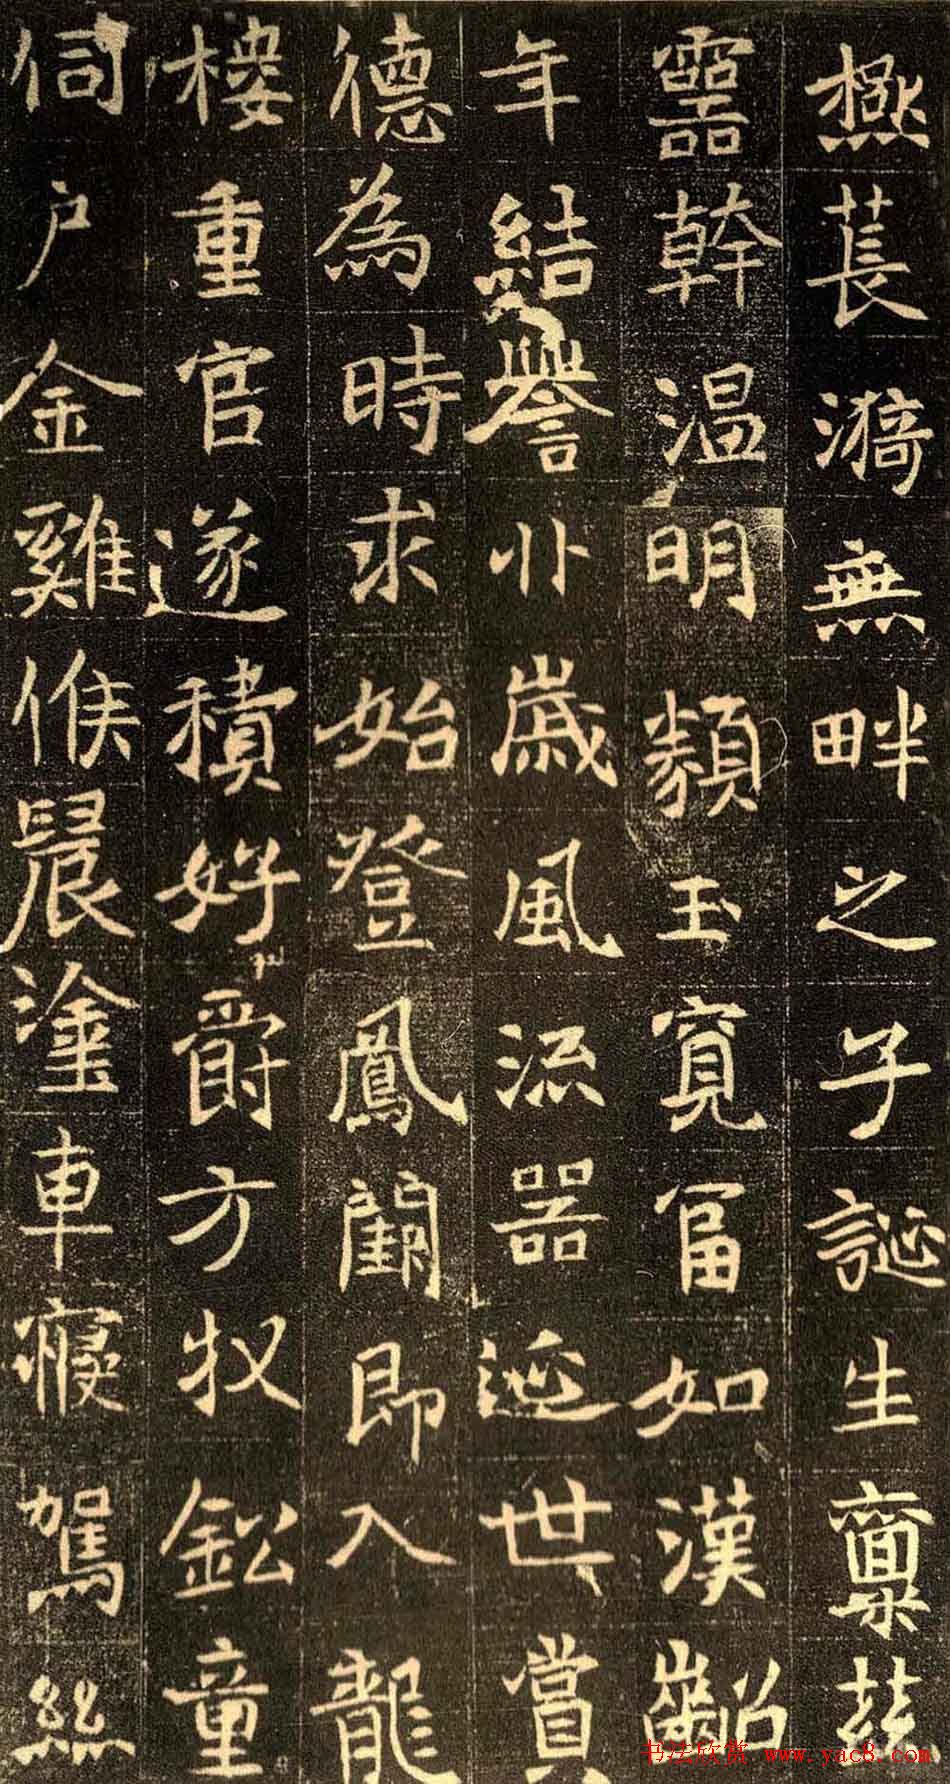 極萇漪無畔之子誕生稟茲
靈幹温明類玉寬冨如漢齠
年結譽丱歲風流器延世賞
德為時求始登鳳闕即入龍
樓重官遂積好爵方牧鈆童
伺戶金雞候晨塗車寢駕絲
书法欣赏 www.yac8.com